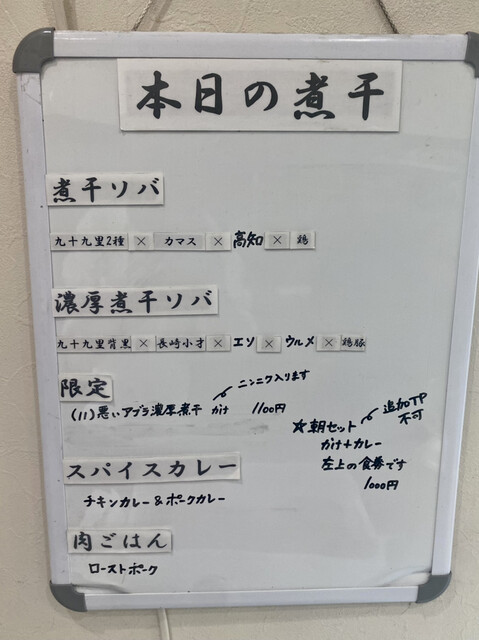 本日の煮干
煮干ソバ
九十九里2種 × カマス × 高知 × 鶏
濃厚煮干ソバ
九十九里背黒 × 長崎小才 × エソ × ウルメ × 鶏豚
限定
ニンニク入ります
(11)悪いアブラ濃厚煮干 かけ 1100円
☆朝セット
追加TP
不可
かけ+カレー
左上の食券です
1000円
スパイスカレー
チキンカレー&ポークカレー
肉ごはん
ローストポーク